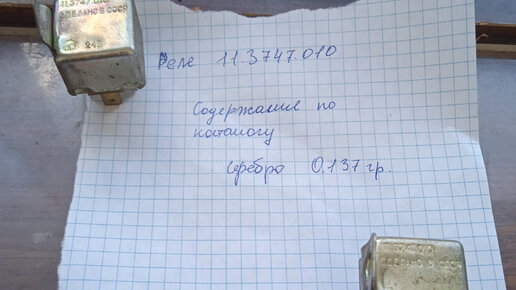 11.3747.010
СДЕЛАНО В СССР
248
Реле 11.3747.010
Содержание по
каталогу
серебро 0,137 гр.
11.3747.010
СДЕЛАНО В СССР